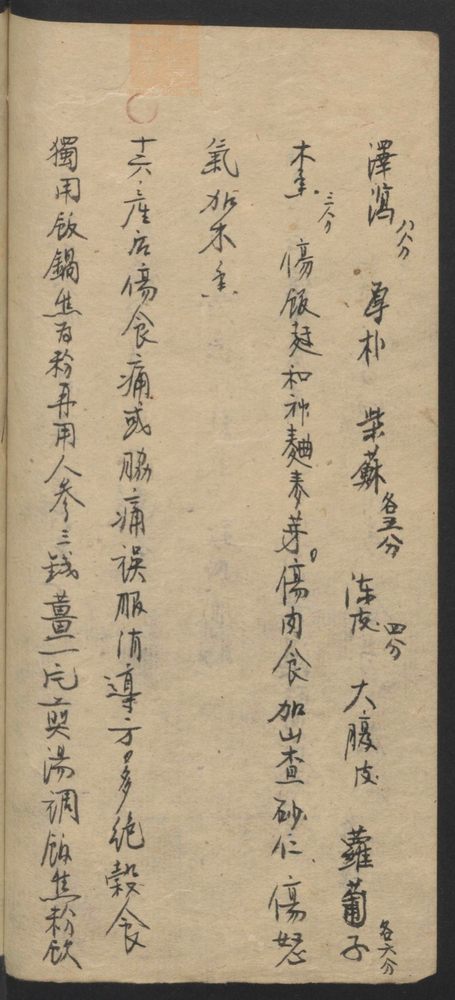 澤瀉八分 厚朴 柴蘇各五分 陳皮四分 大腹皮 蘿蔔子各六分
木香三分 傷飯麵和神麯麥芽。傷肉食加山查砂仁、傷怒
氣加木香
十六、產后傷食痛或脇痛誤服消導方多絕穀食
獨用飯鍋焦為粉再用人參三錢薑二片煎湯調飯焦粉飲